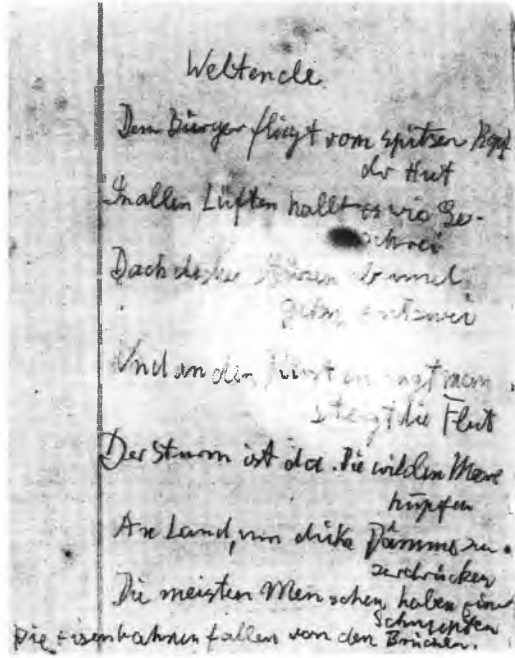 Weltende
Dem Bürger fliegt vom spitzen Kopf
der Hut
In allen Lüften hallt es wie Ge-
schrei
Dachdecker stürzen ab und
gehn entzwei
Und an den Küsten man
steigt die Flut
Der Sturm ist da. Die wilden Meere
hupfen
An Land, um dicke Dämme zu
zerdrücken
Die meisten Menschen haben einen
Schnupfen
Die Eisenbahnen fallen von den Brücken.